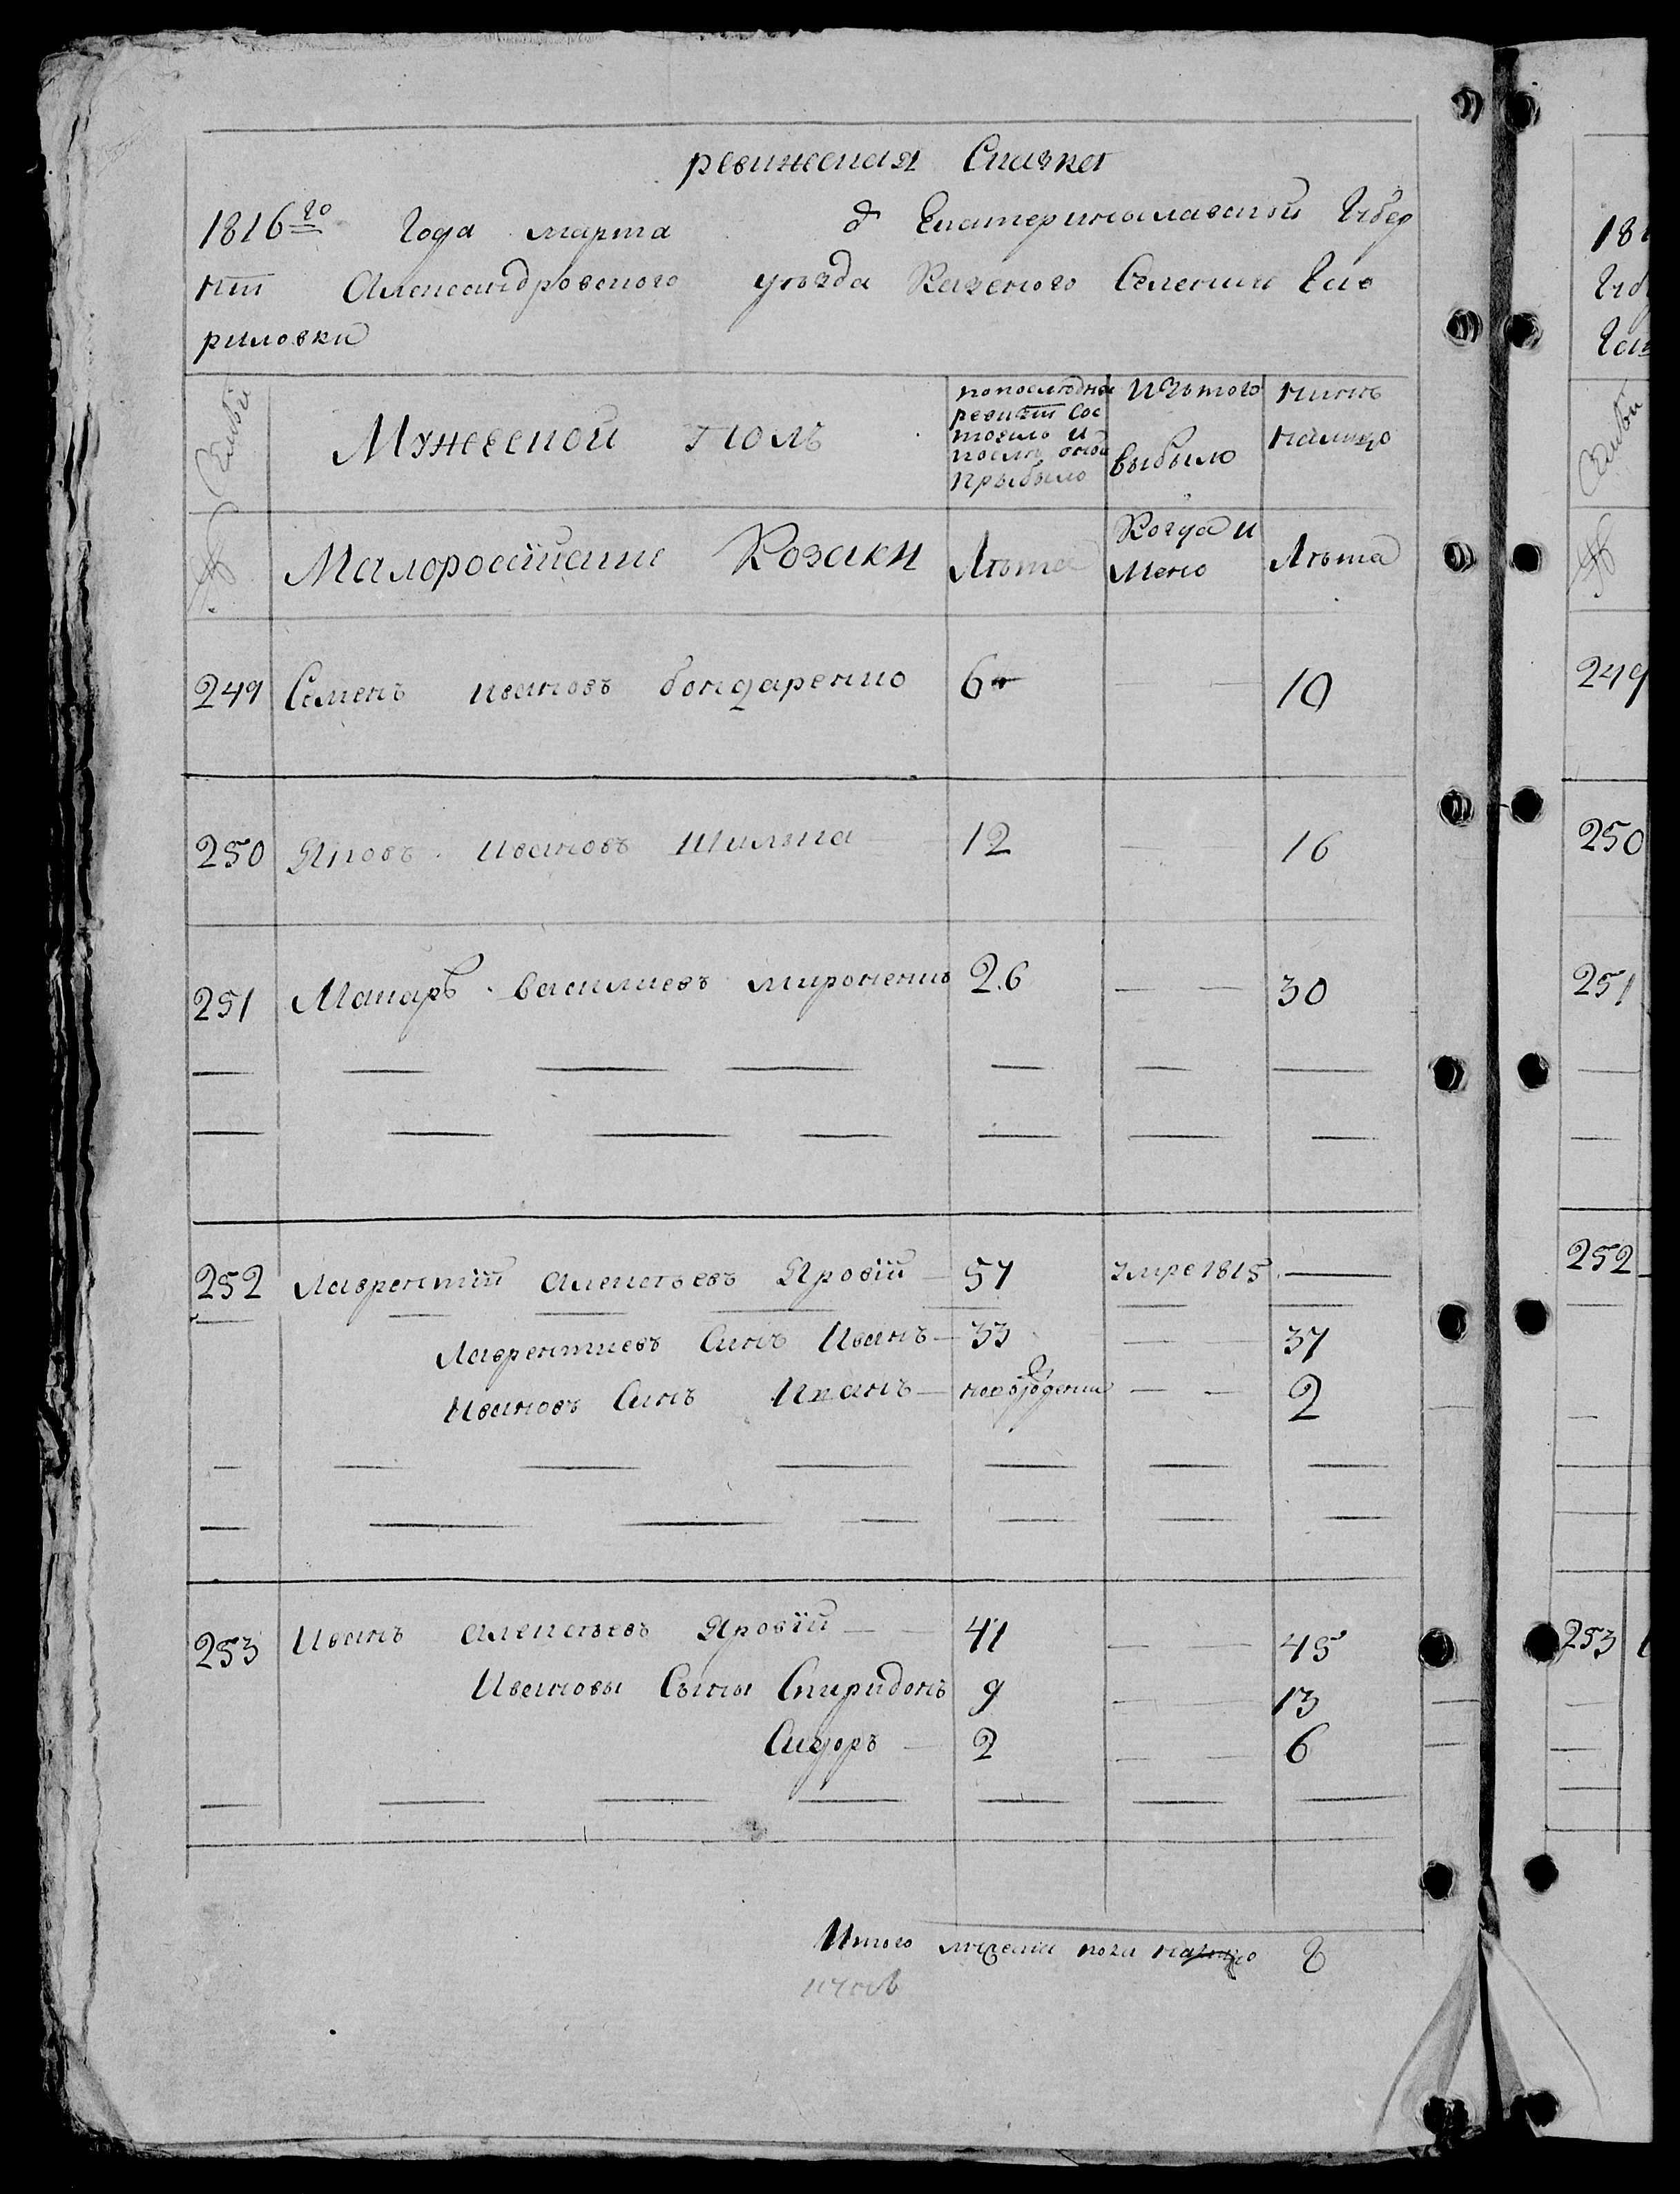 ревижская Сказка
1816го Года марта д Екатеринославской Губер
нии Александровского уезда Казеного Селения Гав
риловки
Семьи
Мужеской полъ
попоследней
ревизии Сос
тояло и
после оной
прыбыло
Изътого
выбыло
нинѣ
налицо
№
Малоросийские Козаки
Лѣта
Когда и
Мено
Лѣта
249 Семенъ ивановъ бондаренко 6 — — 10
250 Яковъ Ивановъ Шилка — 12 — 16
251 Макаръ василиевъ мироненко 26 — — 30
252 Лаврентий Алексѣевъ Яровій 57 умре 1815 —
Лаврентиевъ Синъ Иванъ — 33 — 37
Ивановъ Синъ Иванъ — новорождений — — 2
253 Иванъ Алексѣевъ Яровій — 41 — — 45
Ивановы Сыны Спиридонъ 9 — — 13
Сидоръ — 2 — — 6
Итого мужеска пола налицо 8
181
Губ
Гав
Семьи
№
249
250
251
252
253